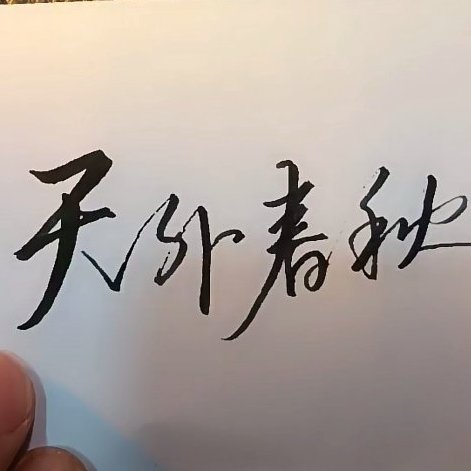 天外春秋